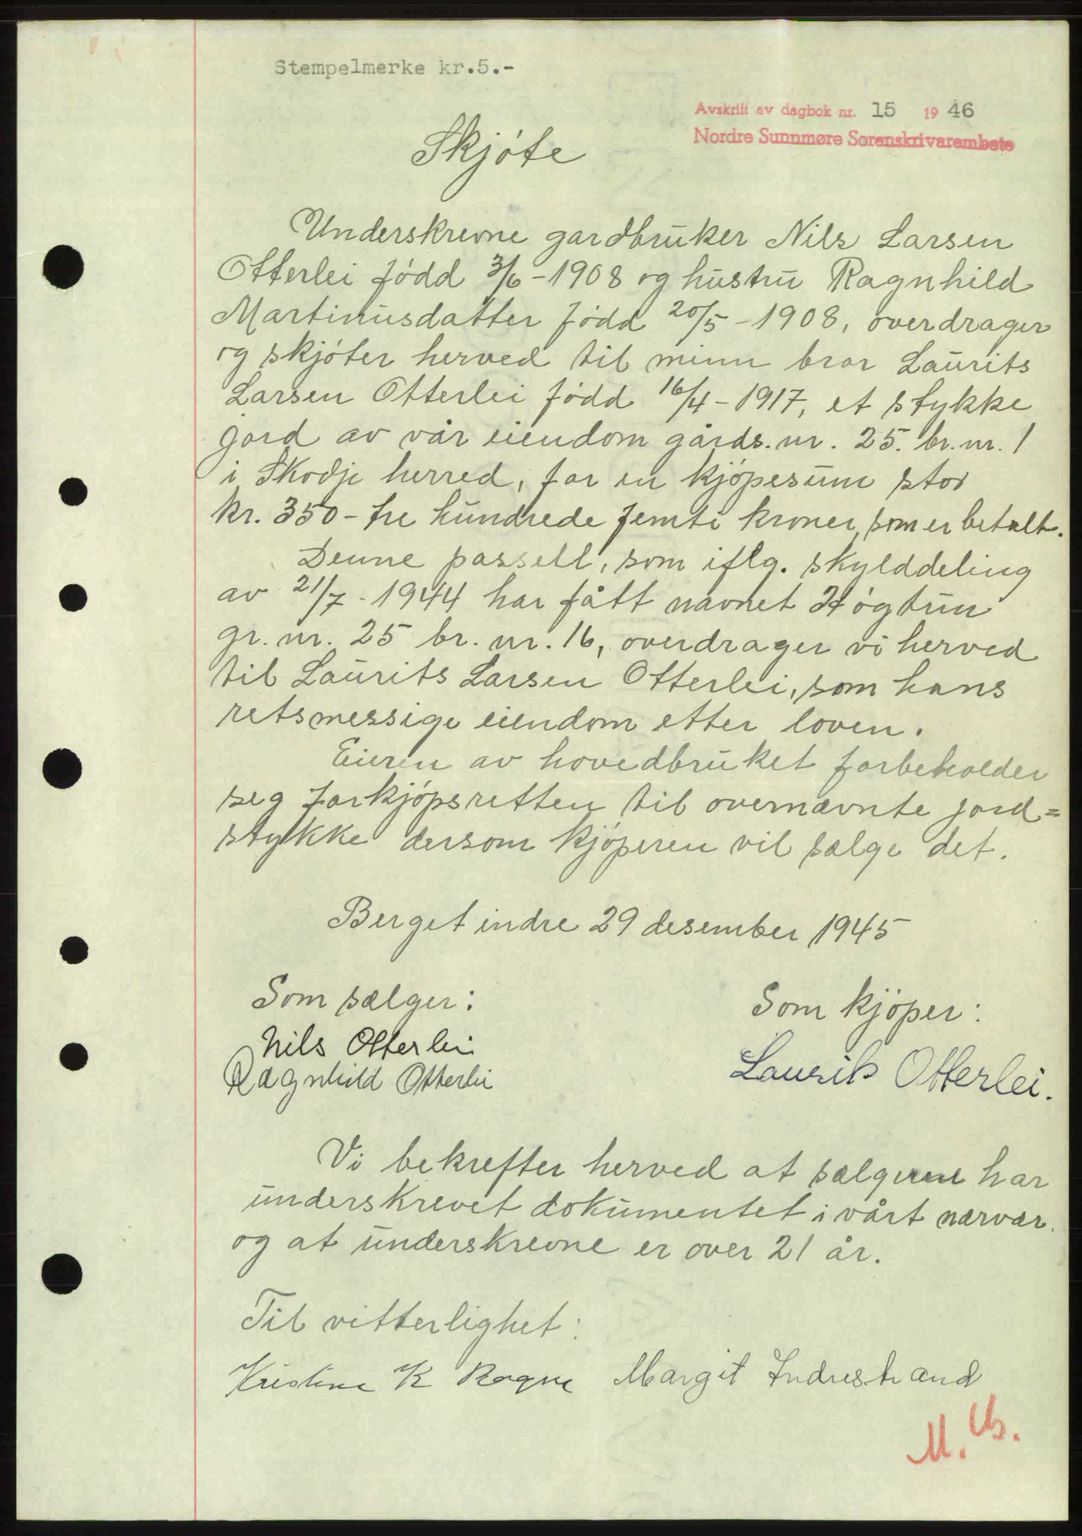 Stempelmerke kr.5.-
Avskrift av dagbok nr. 15 1946
Nordre Sunnmøre Sorenskrivarembete
Skjøte
Underskrevne gardbruker Nils Larsen
Otterlei fødd 3/6-1908 og hustru Ragnhild
Martinusdatter fødd 20/5-1908, overdrager
og skjøter herved til minn bror Laurits
Larsen Otterlei fødd 16/4-1917, et stykke
jord av vår eiendom gårds.nr. 25. br.nr. 1
i Skodje herred, for en kjøpesum stor
kr. 350- tre hundrede femti kroner, som er betalt.
Denne passell, som iflg. skylddeling
av 21/7-1944 har fått navnet Høgtun
gr. nr. 25 br. nr. 16, overdrager vi herved
til Laurits Larsen Otterlei, som hans
retsmessige eiendom etter loven.
Eieren av hovedbruket forbeholder
seg forkjøpsretten til overnævnte jord=
stykke dersom kjøperen vil sælge det.
Berget indre 29 desember 1945
Som sælger:
Nils Otterlei
Ragnhild Otterlei
Som kjøper:
Laurits Otterlei.
Vi bekrefter herved at sælgerne har
underskrevet dokumentet i vårt nærvær.
og at underskrevne er over 21 år.
Til vitterlighet:
Kristine K Rogne Margit Indrestrand